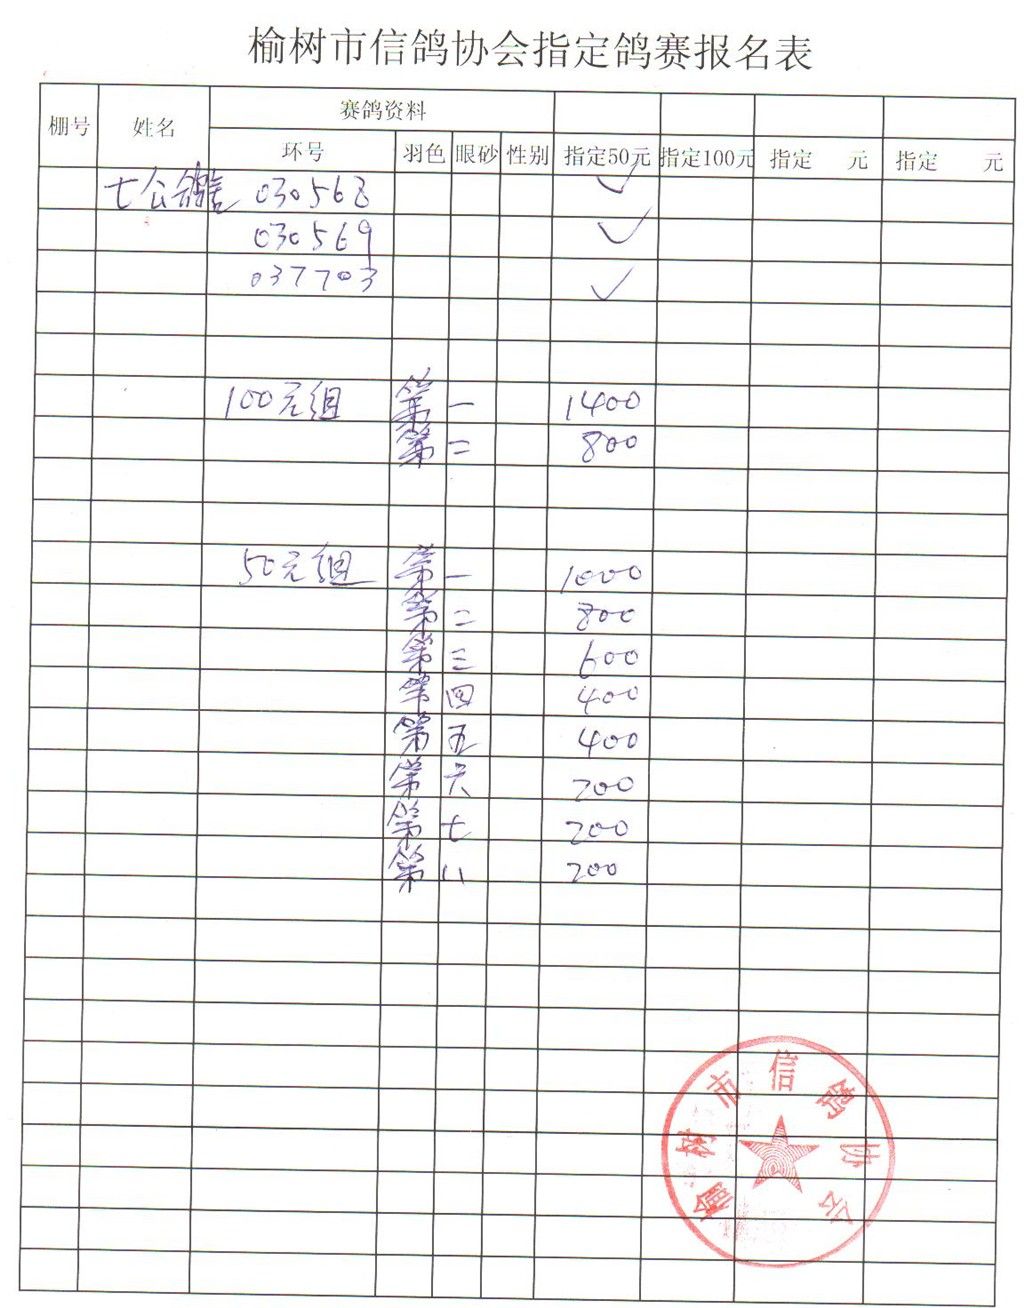 榆树市信鸽协会指定鸽赛报名表
棚号 姓名 赛鸽资料
环号 羽色 眼砂 性别 指定50元 指定100元 指定 元 指定 元
七公鸽舍 030568 ✓
030569 ✓
037703 ✓
100元组 第一 1400
第二 800
50元组 第一 1000
第二 800
第三 600
第四 400
第五 400
第六 200
第七 200
第八 200
榆树市信鸽协会